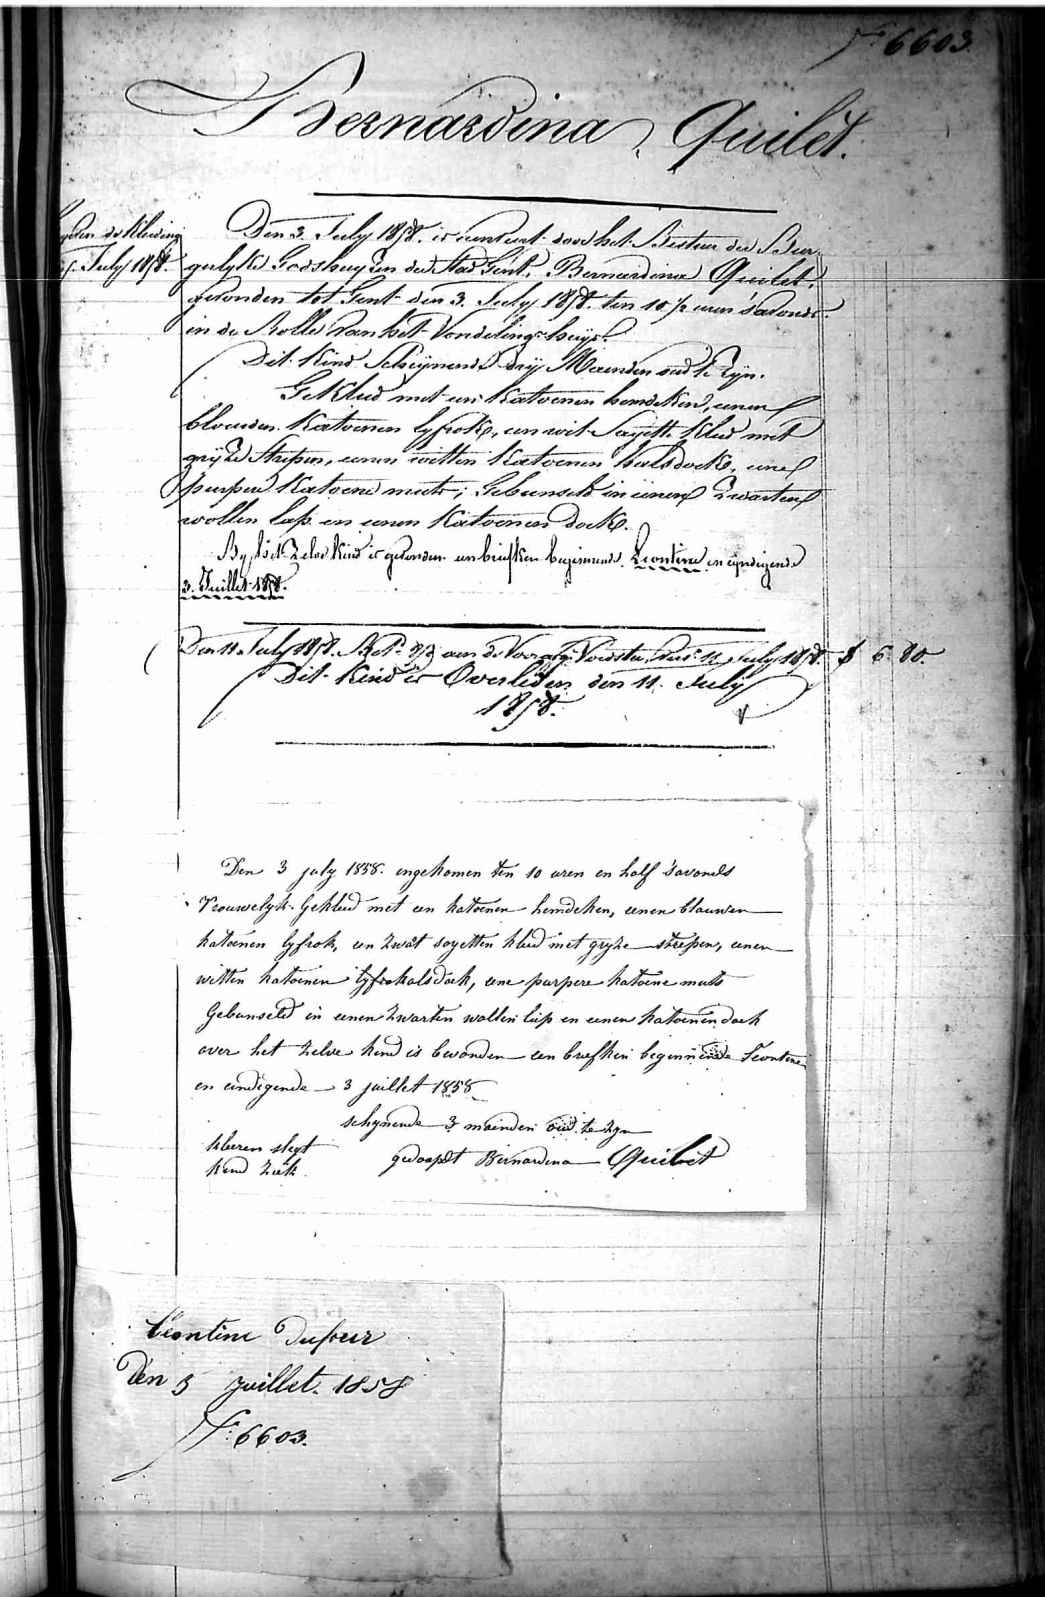 N° 6603.
Bernardina Quilet.
de Kleeding
July 1858.
Den 3. July 1858. is besteed door het Bestuur der Bur-
gerlyke Godshuyzen der Stad Gent, Bernardina Quilet,
gevonden tot Gent den 3. July 1858. ten 10 ½ uren s'avonds
in de Rolle van het Vondelings huys.
Dit Kind Schijnende dry Maenden oud te Zyn.
Gekleed met een Katoenen hemdeken, eenen
blauwen Katoenen lyfrok, een wit Sayette Kleed met
gryze Strepen, eenen witten Katoenen halsdoek, eene
purpere Katoene muts; Gebunseld in eenen Zwarten
wollen lap en eenen Katoenen doek.
By het Zelve Kind is gevonden een briefken beginnende Leontine en eyndigende
3. Juillet 1858.
Den 11. July 1858. aen de July 1858. 6 80.
Dit Kind is Overleden den 11. July
1858.
Den 3 july 1858. ingekomen ten 10 uren en half s'avonds
Vrouwelyk. Gekleed met een katoenen hemdeken, eenen blauwen
katoenen lyfrok, een zwat sayetten kleed met gryze strepen, eenen
witten katoenen halsdoek, eene purpere katoene muts
Gebunseld in eenen Zwarten wollen lap en eenen katoenen doek
over het zelve kend is bevonden een briefken beginnende Leontine
en eindigende 3 juillet 1858
schynende 3 mainden oud te zyn
kleeren slegt
kend ziek
gedoopt Bernardina Quilet
Leontine Dufour
Den 3 Juillet. 1858
N° 6603.